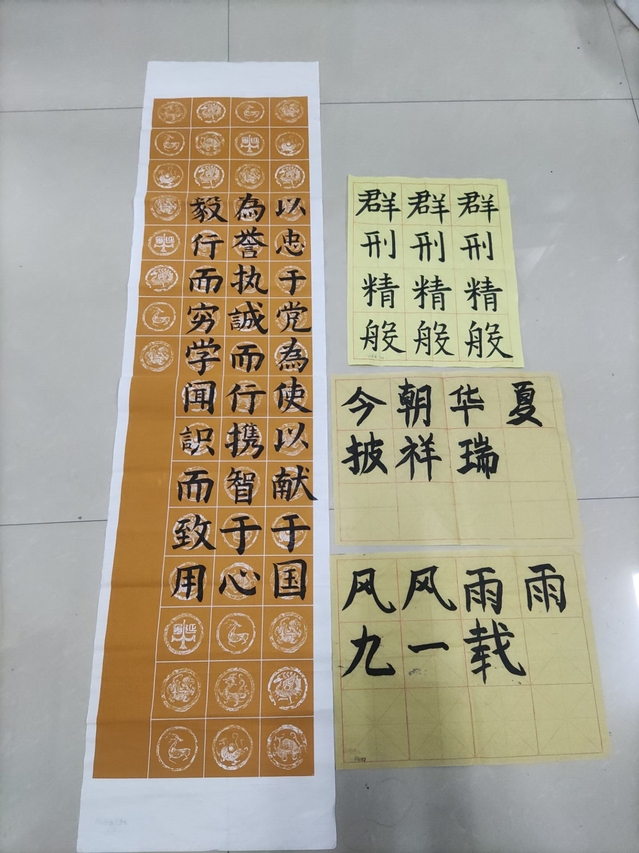 以忠于党為使以献于国
為誉执誠而行携智于心
毅行而穷学闻識而致用
群群群
刑刑刑
精精精
般般般
今朝华夏
披祥瑞
风风雨雨
九一载